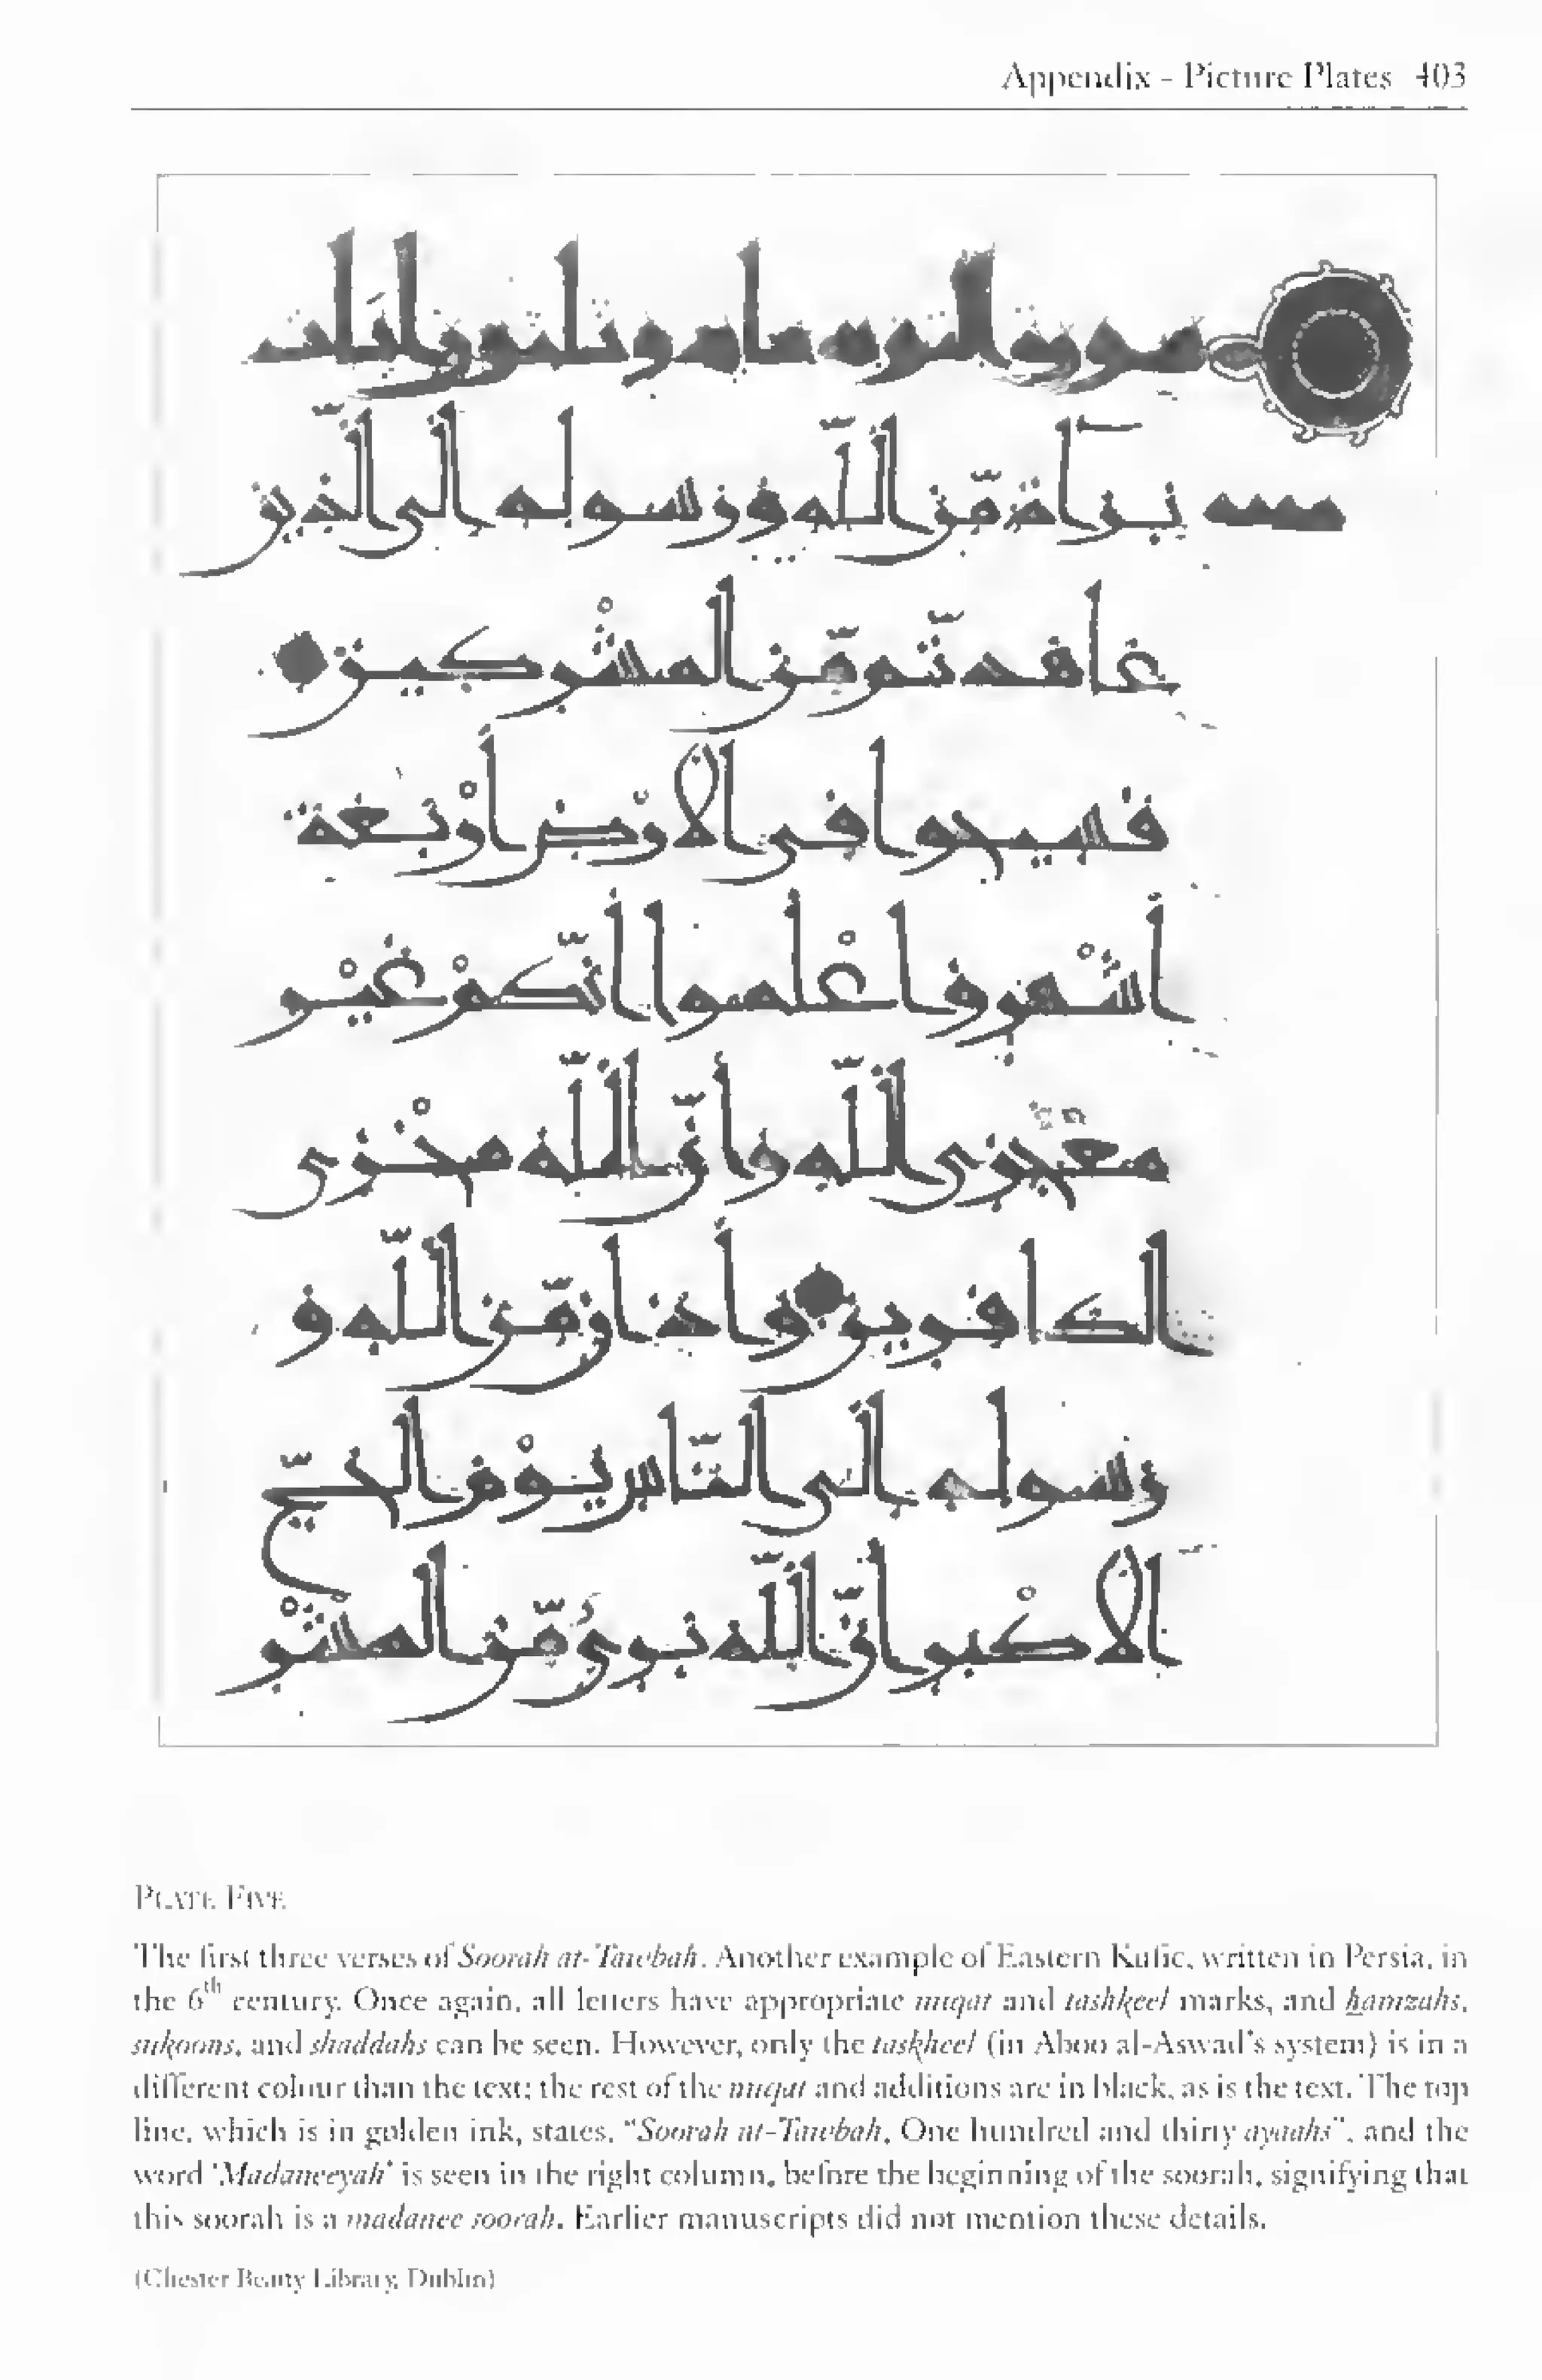 Appendix - Picture Plates 403
سورة التوبة مائة وثلثون ايات
مدنية
بَرَآءَةٌ مِّنَ اللَّهِ وَرَسُولِهِ إِلَى الَّذِينَ
عَاهَدتُّم مِّنَ الْمُشْرِكِينَ
فَسِيحُوا فِي الْأَرْضِ أَرْبَعَةَ
أَشْهُرٍ وَاعْلَمُوا أَنَّكُمْ غَيْرُ
مُعْجِزِي اللَّهِ وَأَنَّ اللَّهَ مُخْزِي
الْكَافِرِينَ وَأَذَانٌ مِّنَ اللَّهِ وَ
رَسُولِهِ إِلَى النَّاسِ يَوْمَ الْحَجِّ
الْأَكْبَرِ أَنَّ اللَّهَ بَرِيءٌ مِّنَ الْمُشْرِ
PLATE FIVE
The first three verses of Soorah at-Tawbah. Another example of Eastern Kufic, written in Persia, in
the 6th century. Once again, all letters have appropriate nuqat and tashkeel marks, and hamzahs,
sukoons, and shaddahs can be seen. However, only the taskheel (in Aboo al-Aswad's system) is in a
different colour than the text; the rest of the nuqat and additions are in black, as is the text. The top
line, which is in golden ink, states, "Soorah at-Tawbah, One hundred and thirty ayaahs", and the
word 'Madaneeyah' is seen in the right column, before the beginning of the soorah, signifying that
this soorah is a madanee soorah. Earlier manuscripts did not mention these details.
(Chester Beatty Library, Dublin)